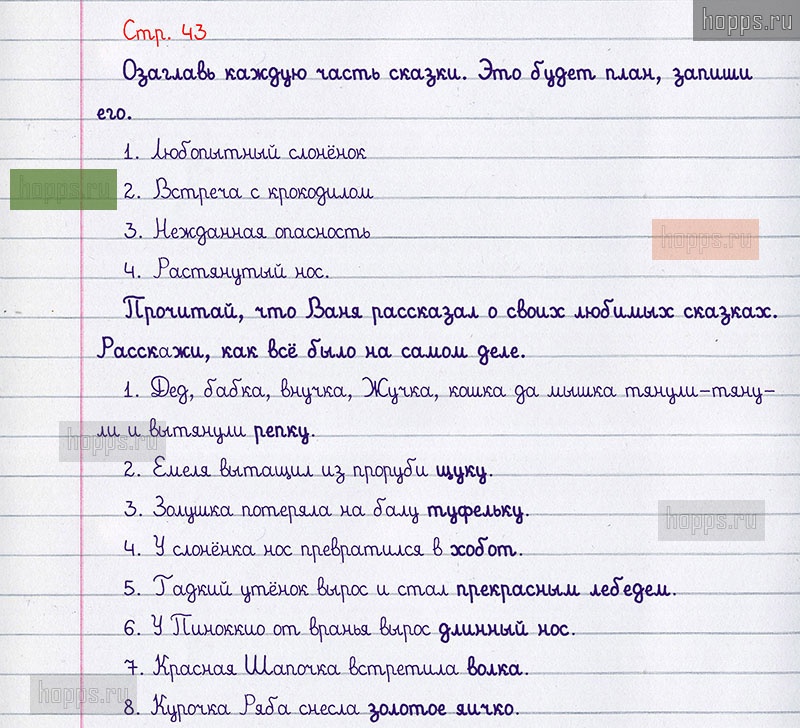 hopps.ru
Стр. 43
Озаглавь каждую часть сказки. Это будет план, запиши
его.
1. Любопытный слонёнок
hopps.ru
2. Встреча с крокодилом
3. Нежданная опасность
hopps.ru
4. Растянутый нос.
Прочитай, что Ваня рассказал о своих любимых сказках.
Расскажи, как всё было на самом деле.
1. Дед, бабка, внучка, Жучка, кошка да мышка тянули-тяну-
ли и вытянули репку.
hopps.ru
2. Емеля вытащил из проруби щуку.
3. Золушка потеряла на балу туфельку.
hopps.ru
4. У слонёнка нос превратился в хобот.
5. Гадкий утёнок вырос и стал прекрасным лебедем.
6. У Пиноккио от вранья вырос длинный нос.
7. Красная Шапочка встретила волка.
hopps.ru
8. Курочка Ряба снесла золотое яичко.